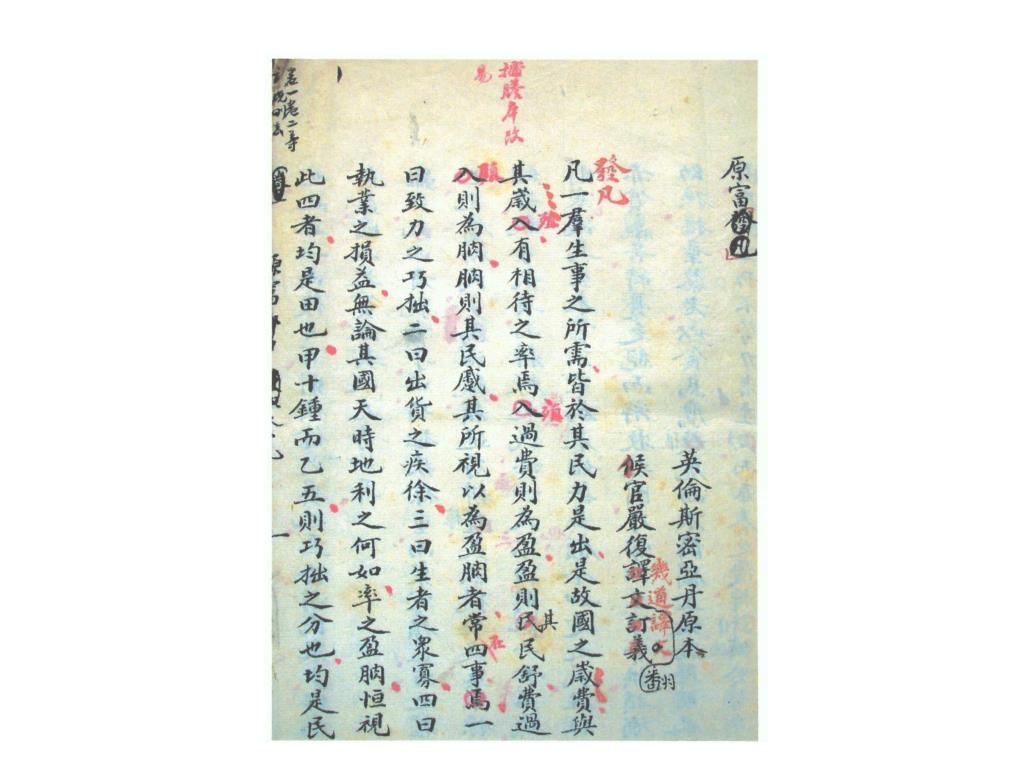 原富
英倫斯密亞丹原本
候官嚴復譯文訂義
幾道譯文
翻
發凡
凡一羣生事之所需皆於其民力是出是故國之歲費與
其歲入有相待之率焉入過費則為盈盈則其民民舒費過
入則為朒朒則其民蹙其所視以為盈朒者常四事焉一
曰致力之巧拙二曰出貨之疾徐三曰生者之眾寡四曰
執業之損益無論其國天時地利之何如率之盈朒恒視
此四者均是田也甲十鍾而乙五則巧拙之分也均是民
改
易
卷一卷二
原富
一